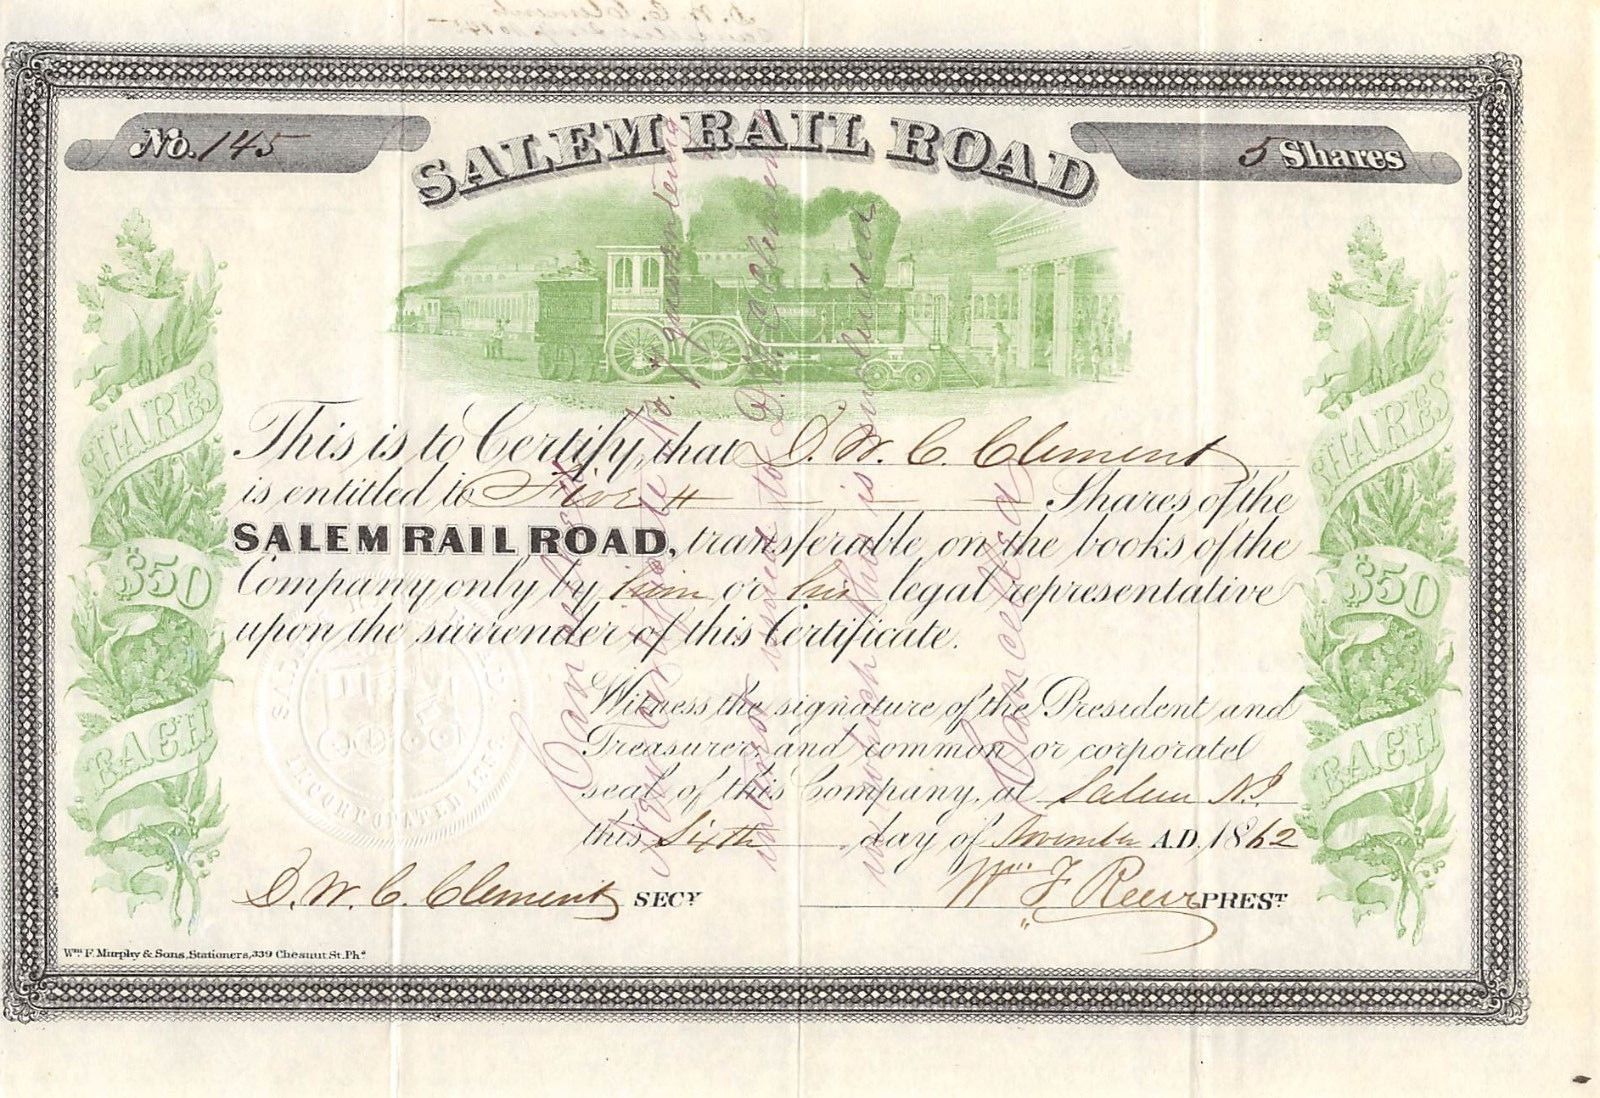 No. 145
SALEM RAIL ROAD
5 Shares
This is to Certify, that D. W. C. Clement
is entitled to Five Shares of the
SALEM RAIL ROAD, transferable on the books of the
Company only by him or his legal representative
upon the surrender of this Certificate.
Witness, the signature of the President and
Treasurer, and common or corporate
seal of this Company, at Salem N.J.
this Sixth day of November A.D. 1862
D. W. C. Clement SECY
Wm. F. Reeve PREST
Wm. F. Murphy & Sons, Stationers, 339 Chesnut St. Pha
SHARES
$50
EACH
SHARES
$50
EACH
SALEM
INCORPORATED
Cancelled
New Certificate No. 1 quantering
issued to D. W. C. Clement
in which this is included
Cancelled
D. W. C. Clement